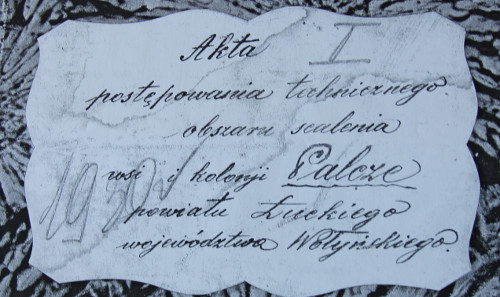 Akta I
postępowania technicznego
obszaru scalenia
wsi i kolonji Palcze
powiatu Łuckiego
województwa Wołyńskiego.